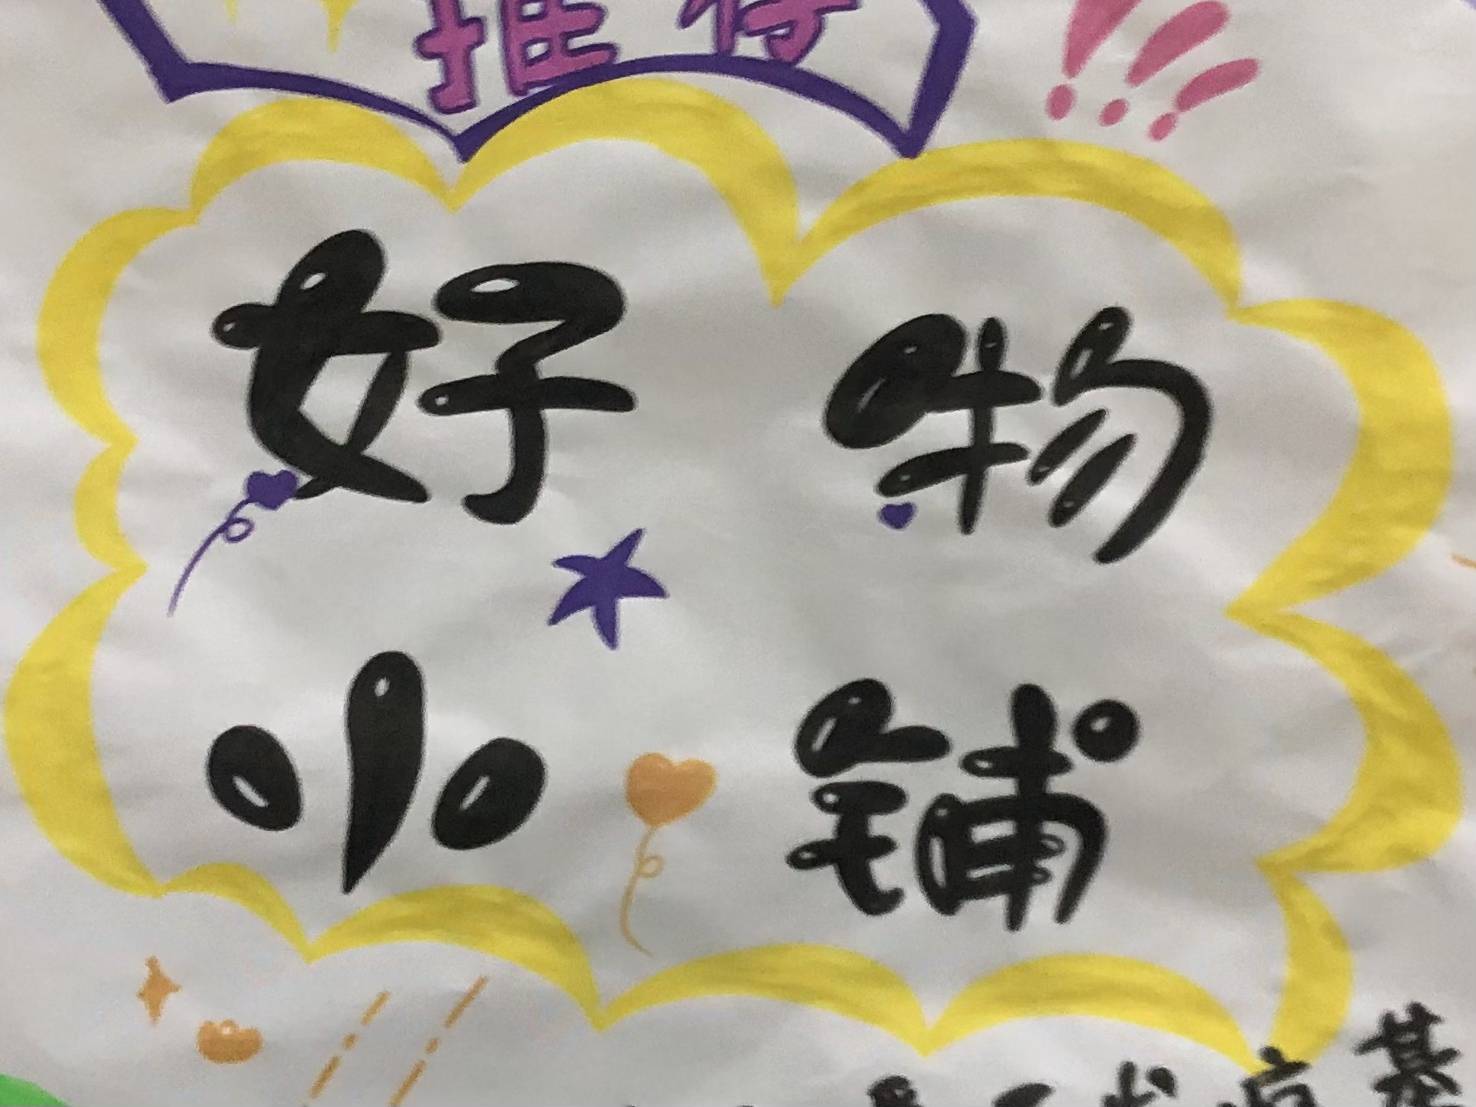 推荐!!!
好物
小铺